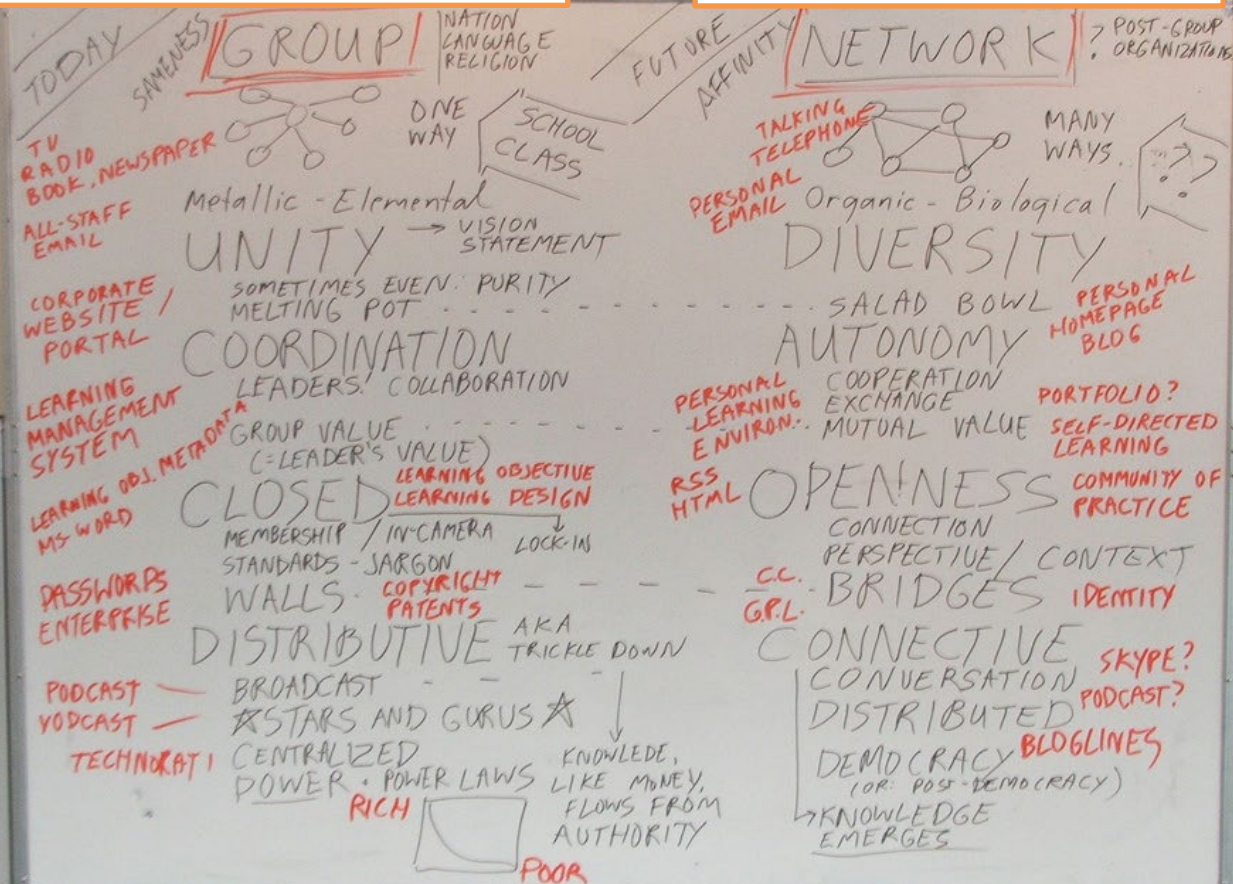 TODAY
SAMENESS
GROUP
NATION
LANGUAGE
RELIGION
ONE
WAY
SCHOOL
CLASS
TV
RADIO
BOOK, NEWSPAPER
ALL-STAFF
EMAIL
Metallic - Elemental
UNITY → VISION
STATEMENT
SOMETIMES EVEN: PURITY
MELTING POT
CORPORATE
WEBSITE /
PORTAL
COORDINATION
LEADERS! COLLABORATION
LEARNING
MANAGEMENT
SYSTEM
GROUP VALUE
(=LEADER'S VALUE)
LEARNING OBJ. METADATA
MS WORD
CLOSED
LEARNING OBJECTIVE
LEARNING DESIGN
MEMBERSHIP / IN-CAMERA
LOCK-IN
STANDARDS - JARGON
PASSWORDS
ENTERPRISE
WALLS
COPYRIGHT
PATENTS
DISTRIBUTIVE AKA
TRICKLE DOWN
PODCAST
VODCAST
BROADCAST
☆STARS AND GURUS☆
TECHNORATI
CENTRALIZED
POWER · POWER LAWS
RICH
POOR
KNOWLEDE,
LIKE MONEY,
FLOWS FROM
AUTHORITY
FUTURE
AFFINITY
NETWORK
? POST-GROUP
ORGANIZATIONS
TALKING
TELEPHONE
MANY
WAYS
? ?
?
PERSONAL
EMAIL
Organic - Biological
DIVERSITY
SALAD BOWL
PERSONAL
HOMEPAGE
BLOG
AUTONOMY
COOPERATION
EXCHANGE
MUTUAL VALUE
PERSONAL
LEARNING
ENVIRON..
PORTFOLIO?
SELF-DIRECTED
LEARNING
RSS
HTML
OPENNESS
COMMUNITY OF
PRACTICE
CONNECTION
PERSPECTIVE / CONTEXT
C.C.
G.P.L.
BRIDGES
IDENTITY
CONNECTIVE
CONVERSATION
SKYPE?
PODCAST?
DISTRIBUTED
BLOGLINES
DEMOCRACY
(OR: POST-DEMOCRACY)
→KNOWLEDGE
EMERGES